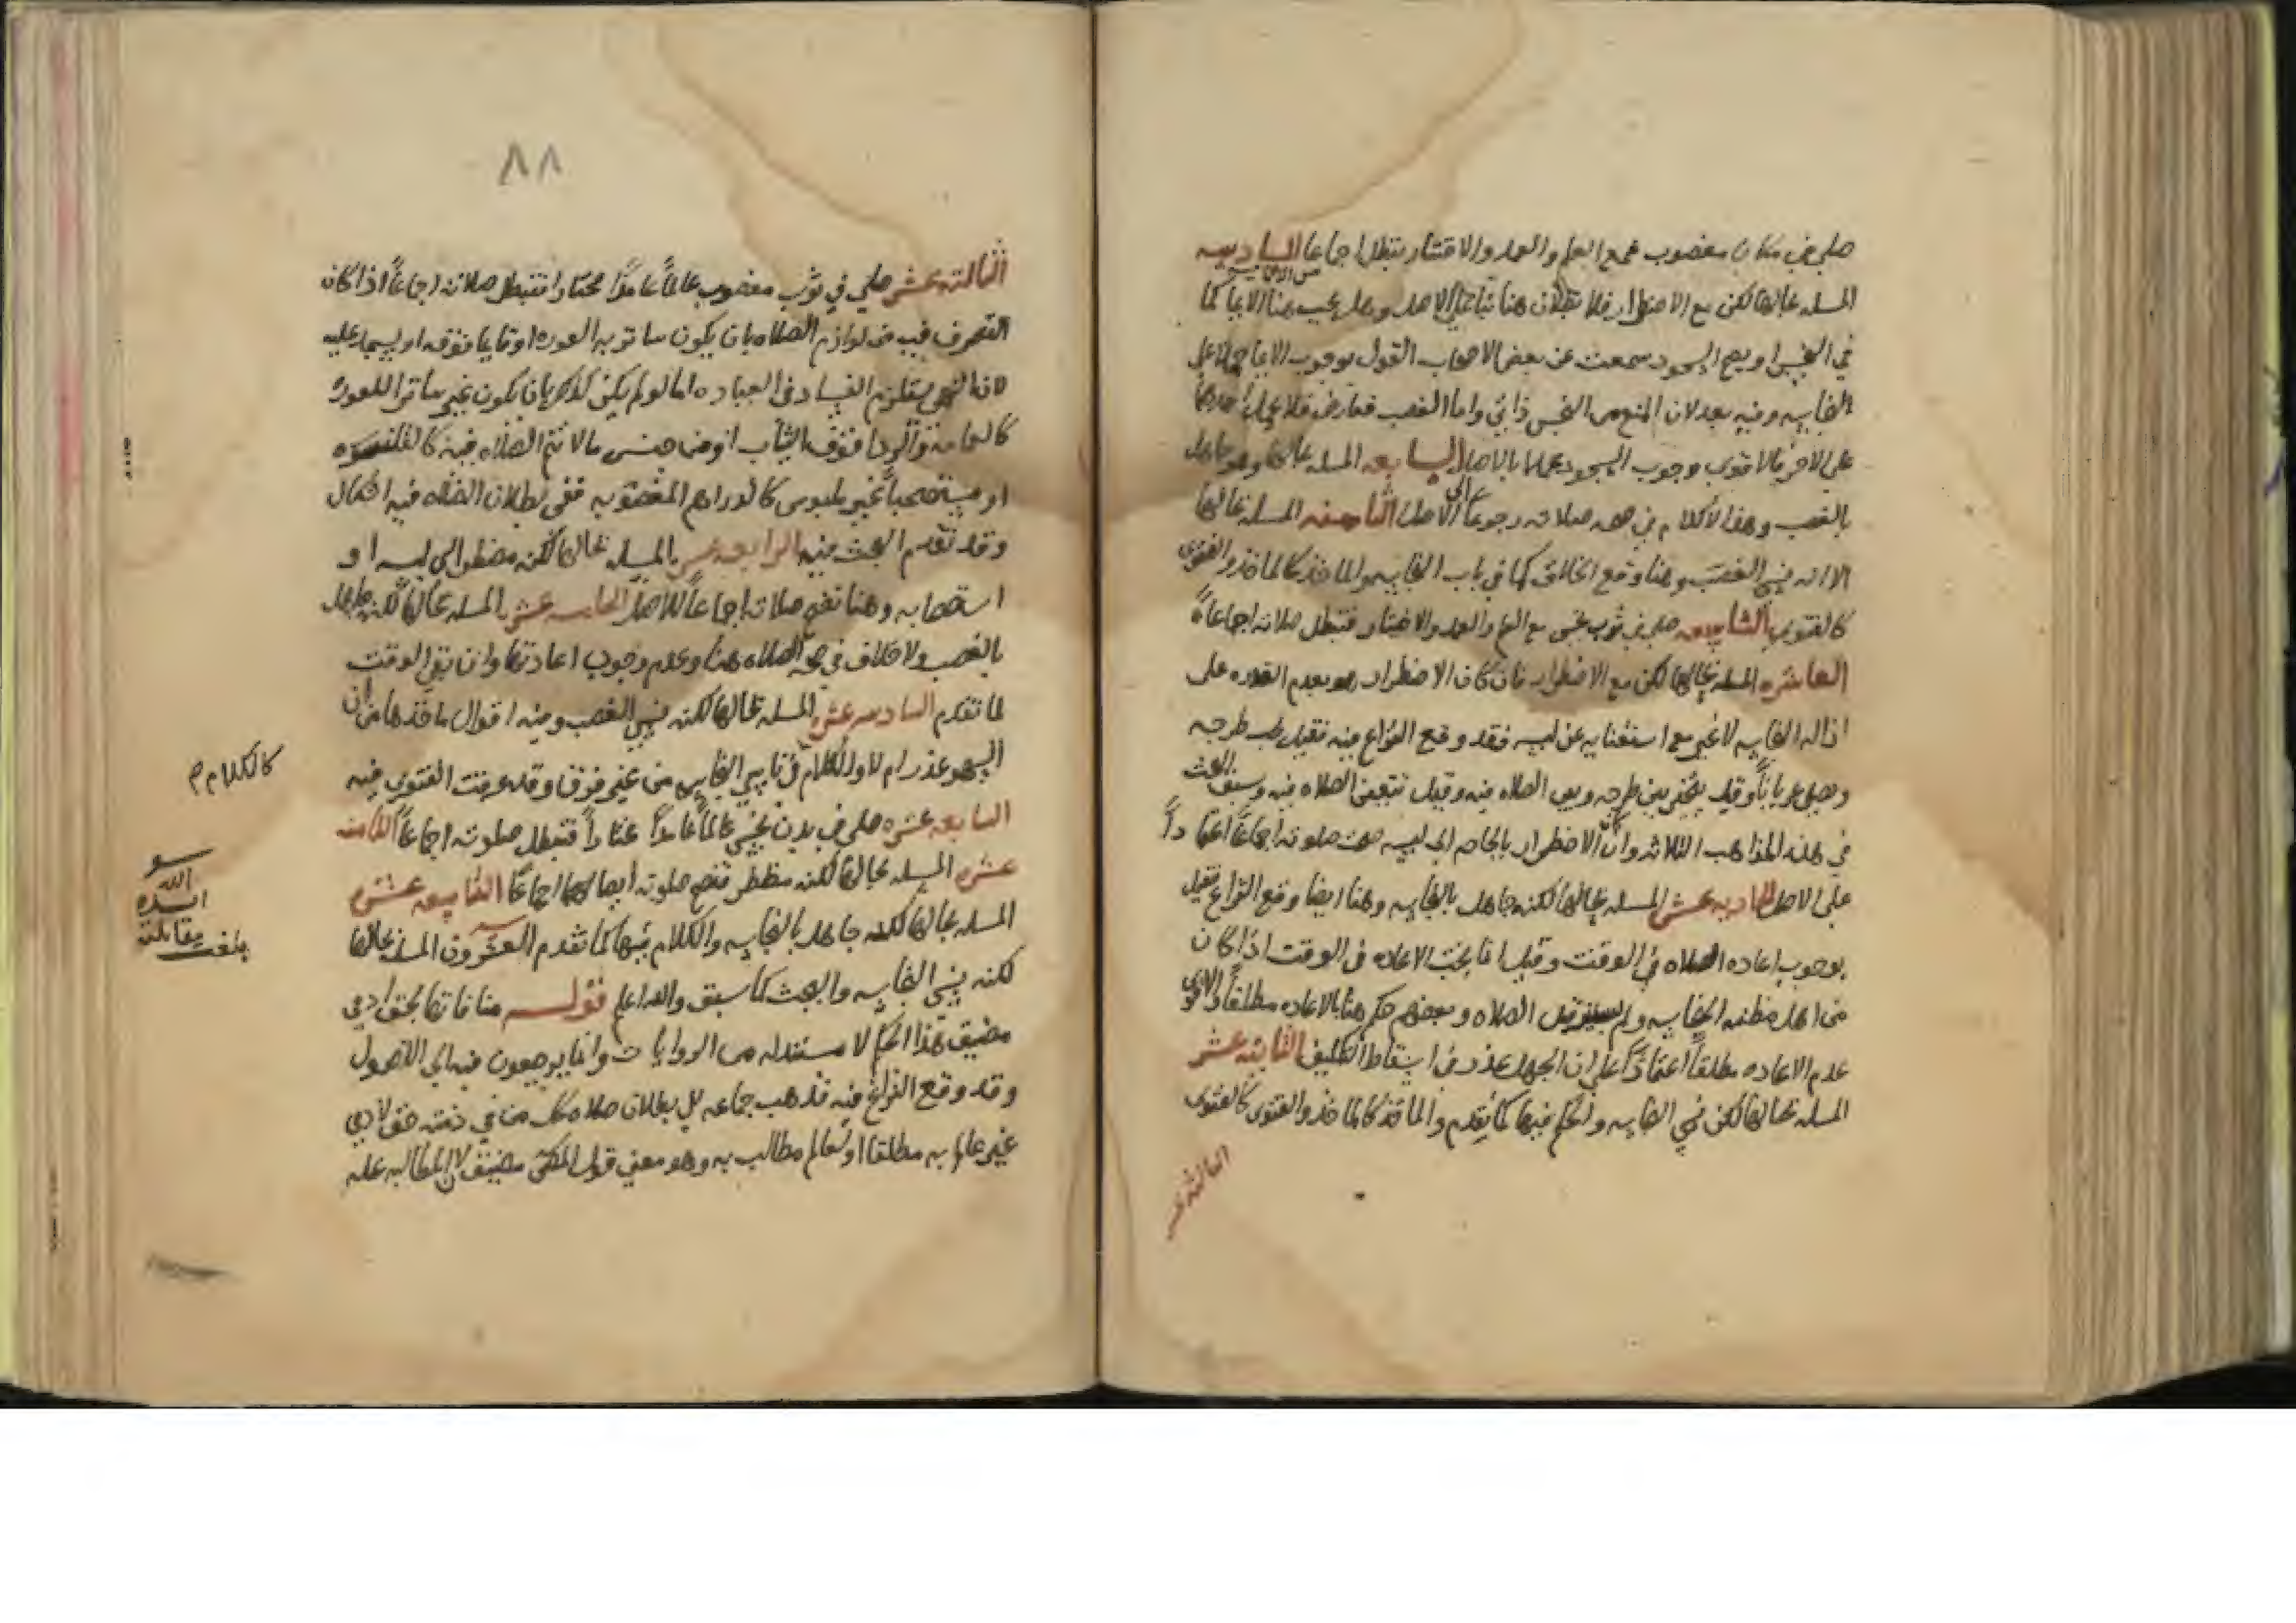 صلى في مكان مغصوب فمع العلم والعمد والاختيار تبطل اجماعا السادسه
المسله بحالها لكن مع الاضطرار فلا بطلان هنا بناء على الاصل وهل يجب هنا الايما كما
في النجس او يصح السجود سمعت عن بعض الاصحاب القول بوجوب الايما حملا على
النجاسه وفيه بعد لان المنع من النجس ذاتي واما الغصب فعارض فلا يحمل احدهما
على الاخر فالاقوى وجوب السجود عملا بالاصل السابعه المسله بحالها وهو جاهل
بالغصب وهنا لا كلام في صحه صلاته رجوعا الى الاصل الثامنه المسله بحالها
الا انه نسي الغصب وهنا وقع الخلاف كما في باب النجاسه والماخذ كالماخذ والفتوى
كالفتوى التاسعه صلى في ثوب نجس مع العلم والعمد والاختيار فتبطل صلاته اجماعاً
العاشره المسله بحالها لكن مع الاضطرار فان كان الاضطرار هو بعدم القدره على
ازاله النجاسه لا غير مع استغنايه عن لبسه فقد وقع النزاع فيه فقيل يجب طرحه
ويصلي عرياناً وقيل يتخير بين طرحه وبين الصلاه فيه وقيل تتعين الصلاه فيه وسبق البحث
في هذه المذاهب الثلاثه وان كان الاضطرار بالجاه الى لبسه صحت صلوته اجماعاً اعتماداً
على الاصل الحاديه عشر المسله بحالها لكنه جاهل بالنجاسه وهنا ايضا وقع النزاع فقيل
بوجوب اعاده الصلاه في الوقت وقيل انما يجب الاعاده في الوقت اذا كان
من اهل مظنه النجاسه ولم يستبرء قبل الصلاه وبعضهم حكم هنا بالاعاده مطلقاً والاقوى
عدم الاعاده مطلقاً اعتماداً على ان الجهل عذر في اسقاط التكليف الثانيه عشر
المسله بحالها لكن نسي النجاسه والحكم فيها كما تقدم والماخذ كالماخذ والفتوى كالفتوى
الثالثه عشر
٨٨
الثالثه عشر صلى في ثوب مغصوب عالماً عامداً مختارا فتبطل صلاته اجماعاً اذا كان
التصرف فيه من لوازم الصلاه بان يكون ساتر به العوره او قايما فوقه او يسجد عليه
لان النهي يستلزم الفساد في العباده اما لو لم يكن كذلك بان يكون غير ساتر اللعوره
كالعمامه والردا فوق الثياب او من جنس ما لا تتم الصلاه فيه كالقلنسوه
او مستصحباً غير ملبوس كالدراهم المغصوبه ففي بطلان الصلاه فيه اشكال
وقد تقدم البحث فيه الرابعه عشر المسله بحالها لكنه مضطر الى لبسه او
استصحابه وهنا تصح صلاته اجماعاً للاصل الخامسه عشر المسله بحالها لكنه جاهل
بالغصب ولا خلاف في صحه الصلاه هنا وعدم وجوب اعادتها وان بقي الوقت
لما تقدم السادسه عشره المسله بحالها لكنه نسي الغصب وفيه اقوال ماخذها من ان
السهو عذر ام لا والكلام في ناسي النجاسه من غير فرق وقد عرفت الفتوى فيه
كالكلام م
السابعه عشره صلى في بدن نجس عالماً عامداً مختاراً فتبطل صلوته اجماعاً الثامنه
عشره المسله بحالها لكنه مظطر فتصح صلوته ايضا لها اجماعًا التاسعه عشره
المسله بحالها لكنه جاهل بالنجاسه والكلام فيها كما تقدم العشرون المسله بحالها
بلغت مقابلة
ايده
الله
لكنه نسي النجاسه والبحث كما سبق والله اعلم قوله منافاتها لحق ادمي
مضيق هذا الحكم لا مستند له من الروايات وانما يرجعون فيه الى الاصول
وقد وقع النزاع فيه فذهب جماعه الى بطلان صلاه كل من في ذمته حق لادمي
غير عالم به مطلقا او عالم مطالب به وهو معنى قول المصنف مضيق لان المطالبه عله